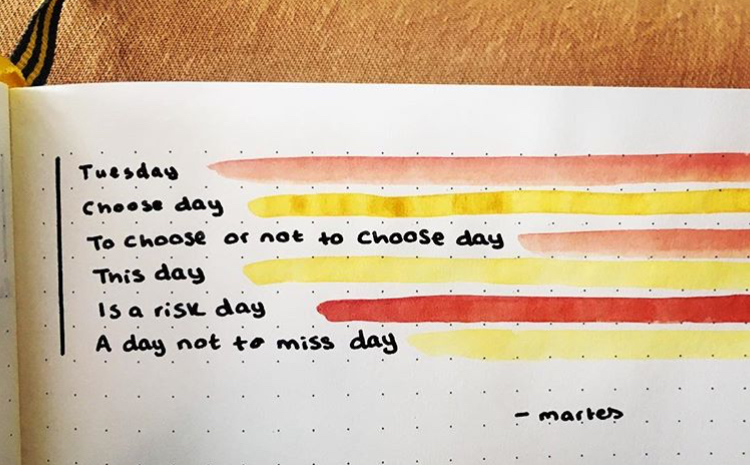 Tuesday
Choose day
To choose or not to choose day
This day
Is a risk day
A day not to miss day
- martes